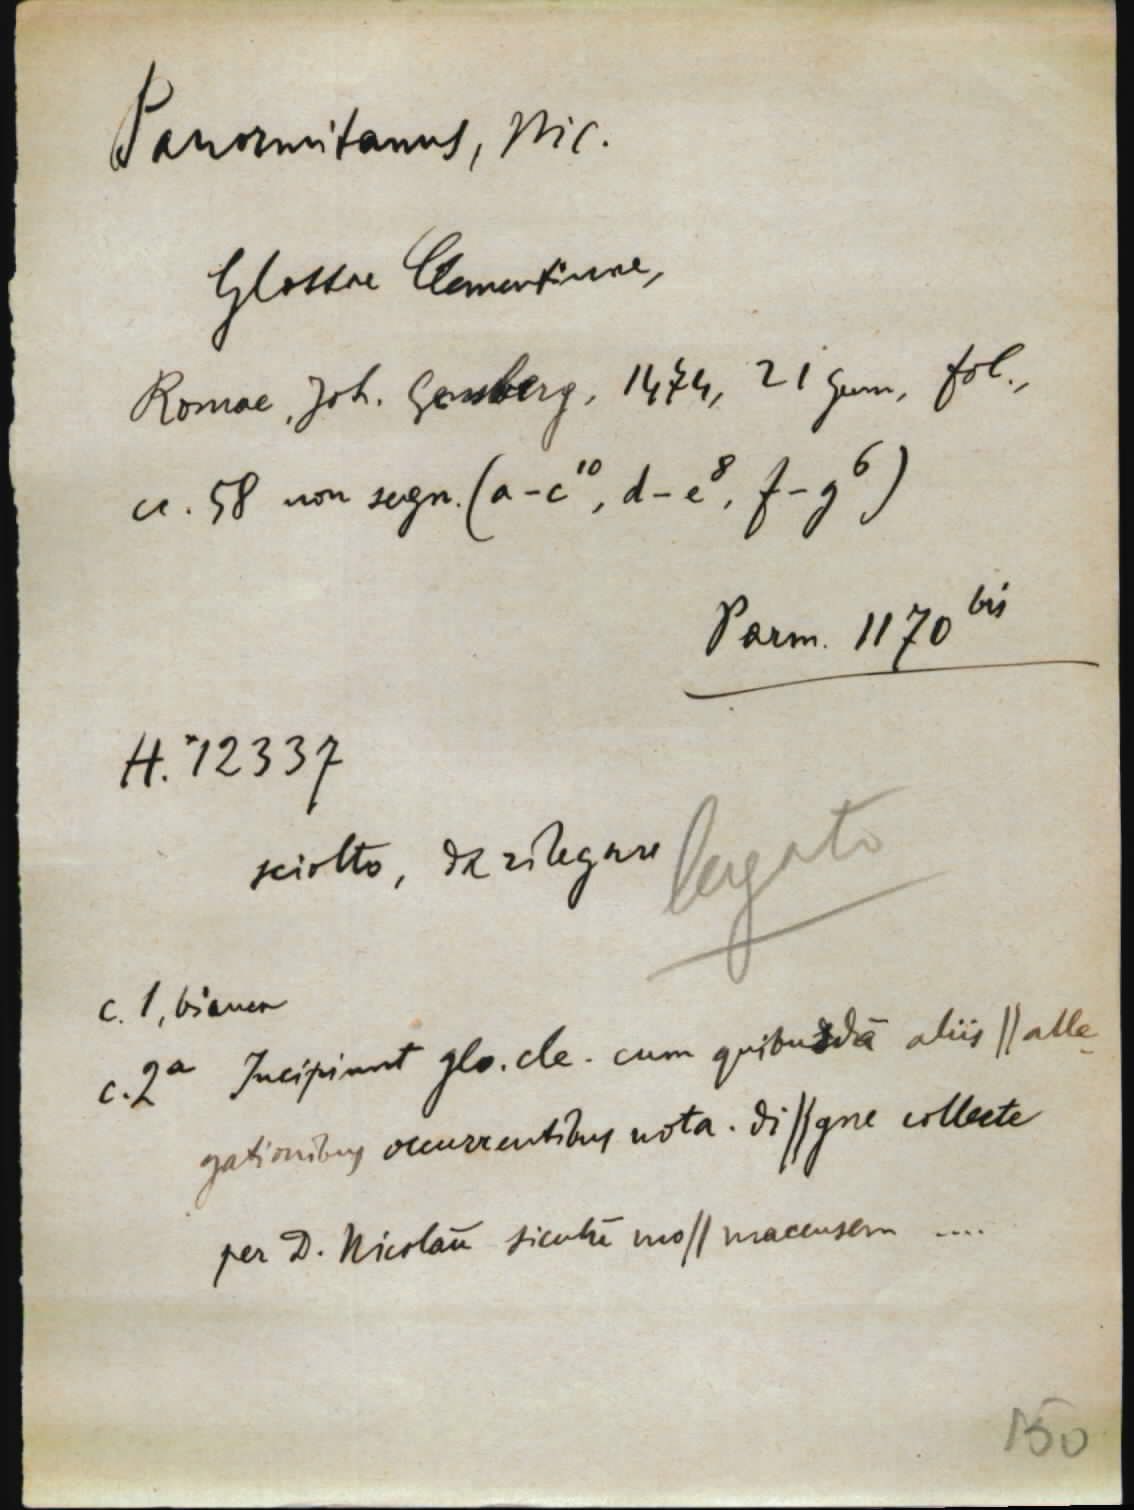 Panormitanus, Nic.
Glossae Clementinae,
Romae, Joh. Gensberg, 1474, 21 gum, fol.,
cc. 58 non segn. (a-c¹⁰, d-e⁸, f-g⁶)
Parm. 1170 bis
H. *12337
sciolto, da rilegare legato
c. 1, bianca
c. 2ᵃ Incipiunt glo. cle. cum quibusdā aliis || alle
gationibus occurrentibus nota. di || gne collecte
per D. Nicolaū siculū mo || nacensem ....
150